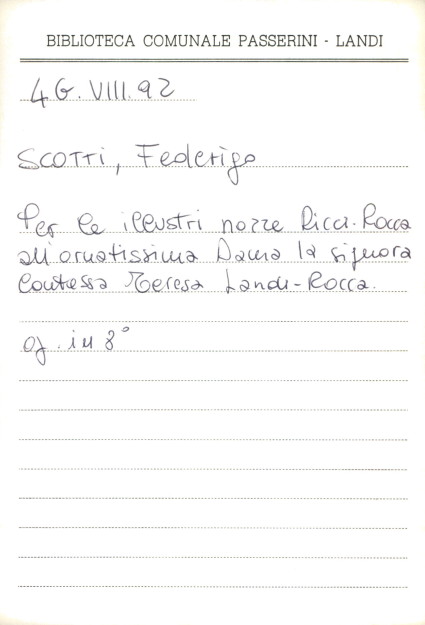 BIBLIOTECA COMUNALE PASSERINI - LANDI
4G. VIII. 92
SCOTTI, Federigo
Per le illustri nozze Ricci-Rocca
all'ornatissima Dama la signora
Contessa Teresa Landi-Rocca.
of. in 8°